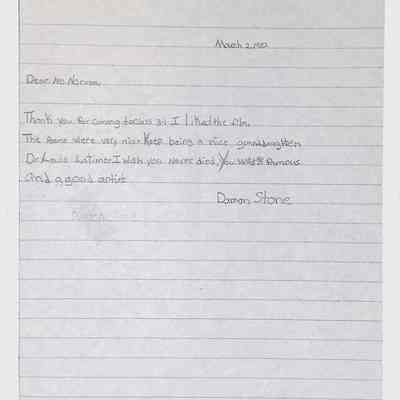 March 2,
Dear Ms Norman
Thank you for coming to class 311 I liked the film.
The Poems were very nice. Keep being a nice granddaughter.
Dr. Louis Latimer I wish you never died, You were famous
and a good artist
Damon Stone